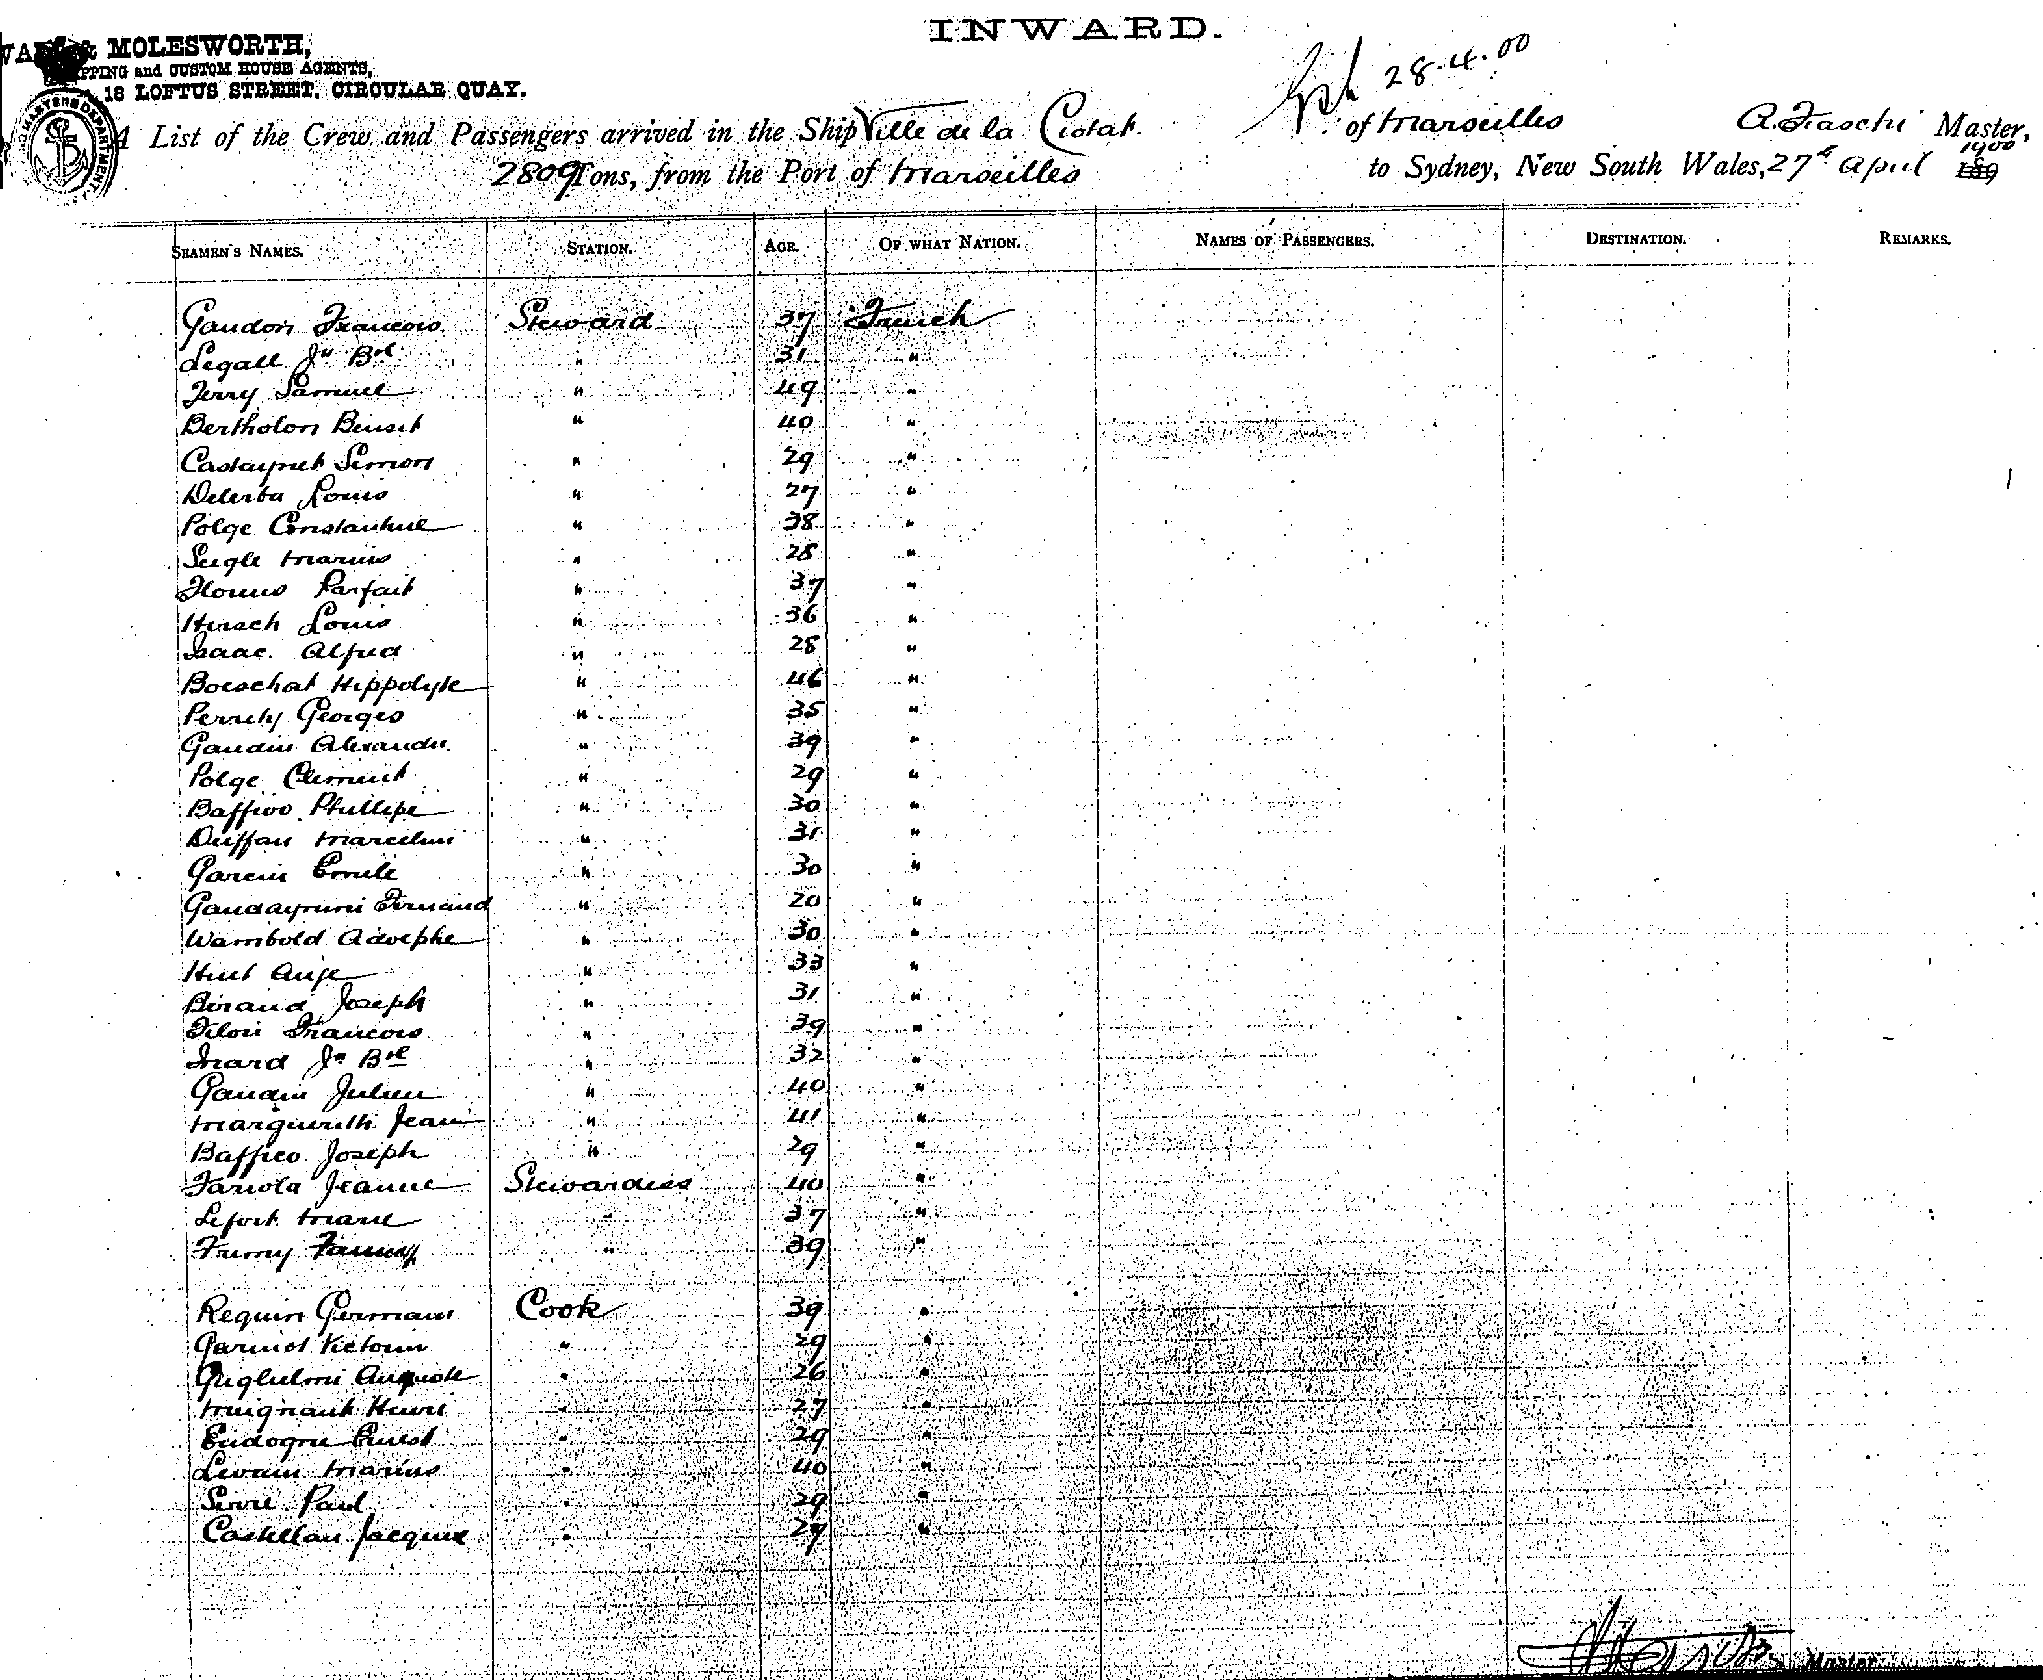 INWARD.
& MOLESWORTH,
SHIPPING and CUSTOM HOUSE AGENTS,
18 LOFTUS STREET, CIRCULAR QUAY.
28.4.00
A List of the Crew and Passengers arrived in the Ship Ville de la Ciotat. of Marseilles A. Fiaschi Master,
2809 Tons, from the Port of Marseilles to Sydney, New South Wales, 27th April 1900
SEAMEN'S NAMES. STATION. AGE. OF WHAT NATION. NAMES OF PASSENGERS. DESTINATION. REMARKS.
Gaudon Francois Steward 37 French
Legall Jn Bte " 31 "
Ferry Samuel " 49 "
Bertholon Benoit " 40 "
Castaynet Simon " 29 "
Delerba Louis " 27 "
Polge Constantine " 38 "
Seigle Marius " 28 "
Florins Parfait " 37 "
Hirsch Louis " 36 "
Isaac Alfred " 28 "
Boeschat Hippolyte " 46 "
Perrety Georges " 35 "
Gaudin Alexandre " 39 "
Polge Clement " 29 "
Baffico Phillipe " 30 "
Duffau Marcelin " 31 "
Garcin Emile " 30 "
Fernand " 20 "
Wambold Adolphe " 30 "
Huet Ange " 33 "
Biraud Joseph " 31 "
Filon Francois " 39 "
Inard Jn Bte " 32 "
Gaudin Julien " 40 "
Marguerith Jean " 41 "
Baffico Joseph " 29 "
Fariola Jeanne Stewardess 40 "
Lefort Marie " 37 "
Frumy Fanny " 39 "
Requin Germain Cook 39 "
Garniot Victorin " 29 "
Guglielmi Auguste " 26 "
Henri " 27 "
Ernest " 29 "
Levain Marius " 40 "
Serre Paul " 29 "
Castellan Jacques " 29 "
Master